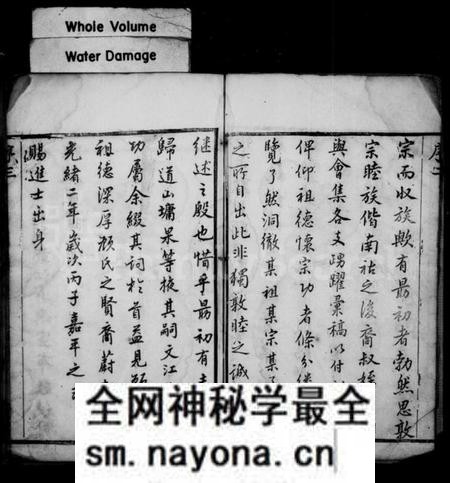 Whole Volume
Water Damage
序二
宗而收族歟有最初者勃然思敦
宗睦族偕南祜之後裔叔姪
與會集各支踴躍彙稿以付
俾仰祖德懷宗功者條分縷
覽了然洞徹某祖某宗某
之所自出此非獨敦睦之誠
继述之殷也惜乎最初有
歸道山墉杲等掖其嗣文江
功屬余綴其詞於首益見
祖德深厚顏氏之賢裔蔚
光緒二年歲次丙子嘉平之
賜進士出身
序三
全网神秘学最全
sm.nayona.cn